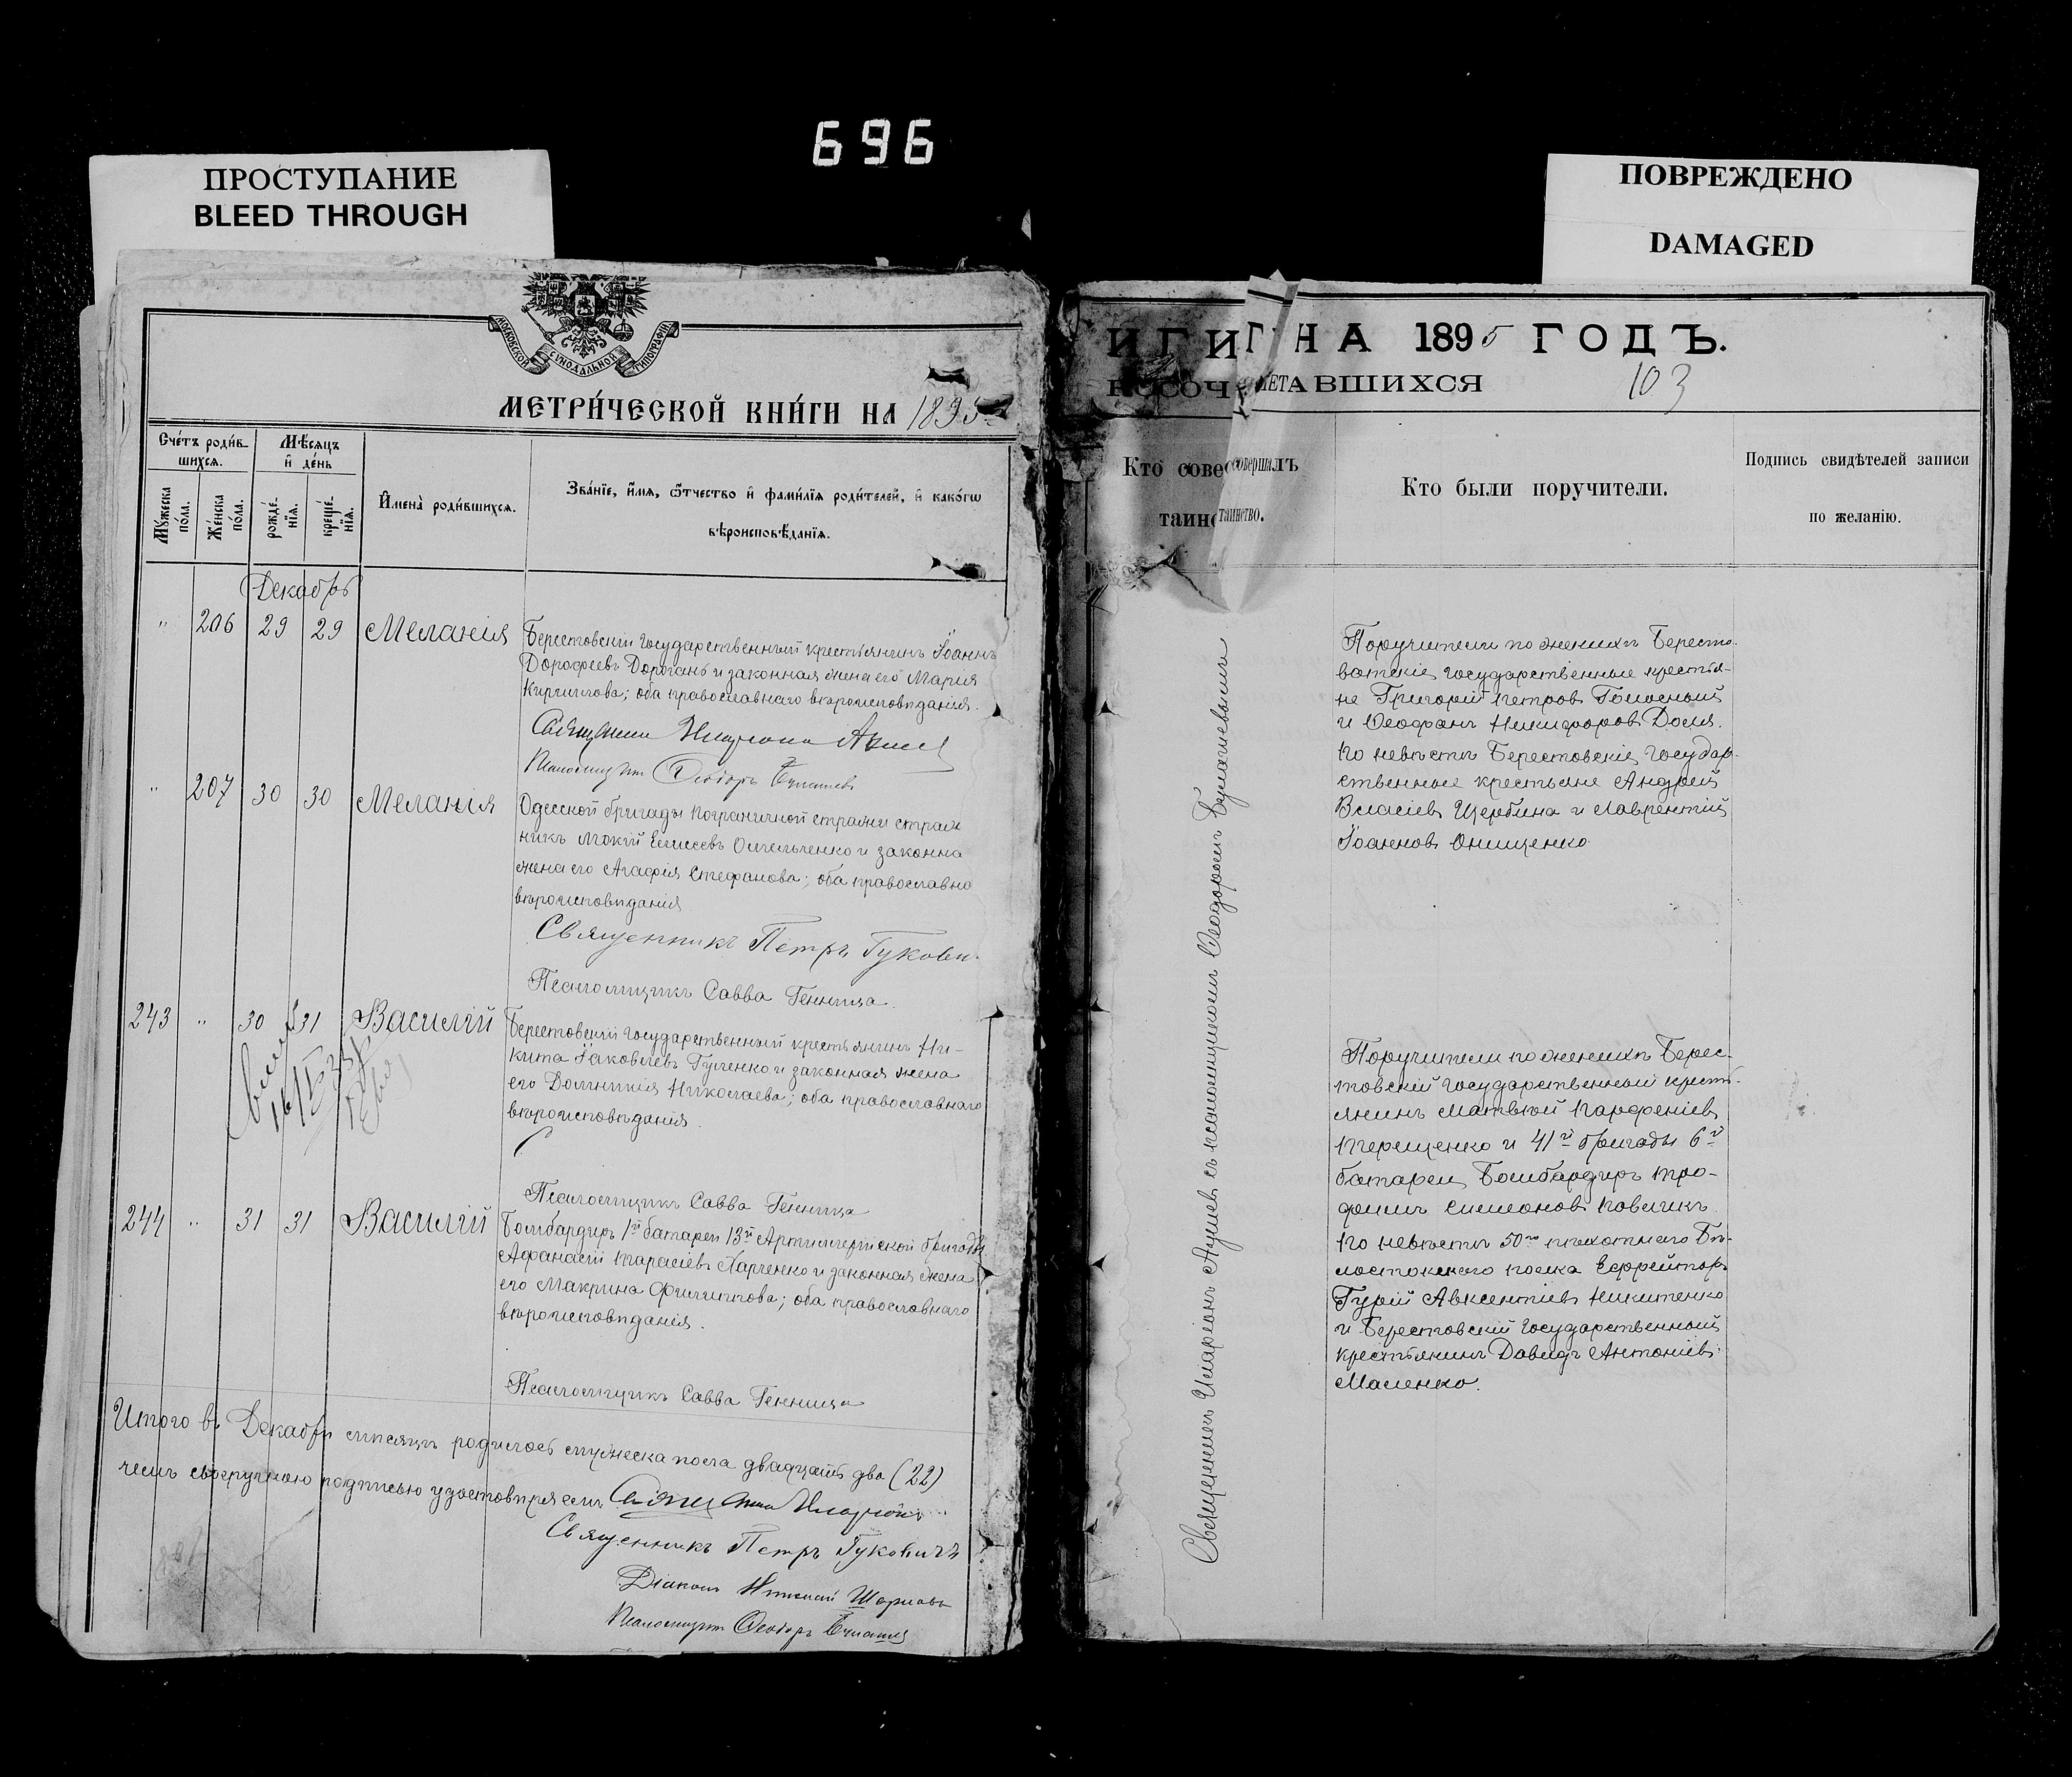 696
ПРОСТУПАНИЕ
BLEED THROUGH
ПОВРЕЖДЕНО
DAMAGED
МОСКОВСКОЙ СУНОДАЛЬНОЙ ТИПОГРАФІИ
МЕТРИ́ЧЕСКОЙ КНИ́ГИ НА 1895
Сче́тъ роди́в-
шихся.
Мѣ́сяцъ
и҆ де́нь
Мꙋ́жеска
по́ла.
Же́нска
по́ла.
рожде́-
нїѧ.
креще́-
нїѧ.
И҆мена̀ роди́вшихся.
Зва́нїе, и҆́мѧ, ѻ҆́тчество и҆ фами́лїѧ роди́телей, и҆ како́гѡ
вѣроисповѣ́данїѧ.
Декабрь
" 206 29 29 Меланія
Берестовскій Государственный крестьянинъ Іоаннъ
Дорофеевъ Дорогань и законная жена его Марія
Кириллова; оба православнаго вѣроисповѣданія.
Псаломщикъ Ѳеодоръ
" 207 30 30 Меланія
Одесской бригады пограничной стражи страж
никъ Мокій Елисеевъ Омельченко и законна
жена его Агафія Стефанова; оба православно
вѣроисповѣданія
Священникъ Петръ Гукови
Псаломщикъ Савва Генница
243 " 30 31 Василій
Берестовскій Государственный крестьянинъ Ни-
кита Іаковлевъ Гуленко и законная жена
его Домникія Николаева; оба православнаго
вѣроисповѣданія.
Псаломщикъ Савва Генница
244 " 31 31 Василій
Бомбардиръ 1й батареи 13й Артиллерійской бригады
Афанасій Тарасіевъ Харченко и законная жена
его Макрина Филиппова; оба православнаго
вѣроисповѣданія.
Псаломщикъ Савва Генница
Итого въ Декабрѣ мѣсяцѣ родилось мужеска пола двадцать два (22)
чемъ своеручною подписью удостовѣряемъ
Священникъ Петръ Гуковичъ
Діаконъ
Псаломщикъ Ѳеодоръ
НА 1895 ГОДЪ.
103
Кто совершалъ
таинство.
Кто были поручители.
Подпись свидѣтелей записи
по желанію.
Священникъ Иларіонъ съ псаломщикомъ Ѳеодоромъ
Поручители по женихѣ Бересто-
ватскіе государственные крестья-
не Григорій Петровъ
и Ѳеофанъ Никифоровъ
По невѣстѣ Берестовскіе Государ-
ственные крестьяне Андрей
Власіевъ Щербина и Лаврентій
Іоанновъ Онищенко
Поручители по женихѣ Берес-
товскій Государственный кресть-
янинъ Матвѣй Парфеніевъ
Терещенко и 41й бригады 6й
батареи Бомбардиръ Тро-
фимъ Симеоновъ
По невѣстѣ 50го пѣхотнаго Бѣ-
лостокскаго полка Ефрейторъ
Гурій Авксентіевъ Никитенко
и Берестовскій Государственный
крестьянинъ Давидъ Антоніевъ
Маленко.